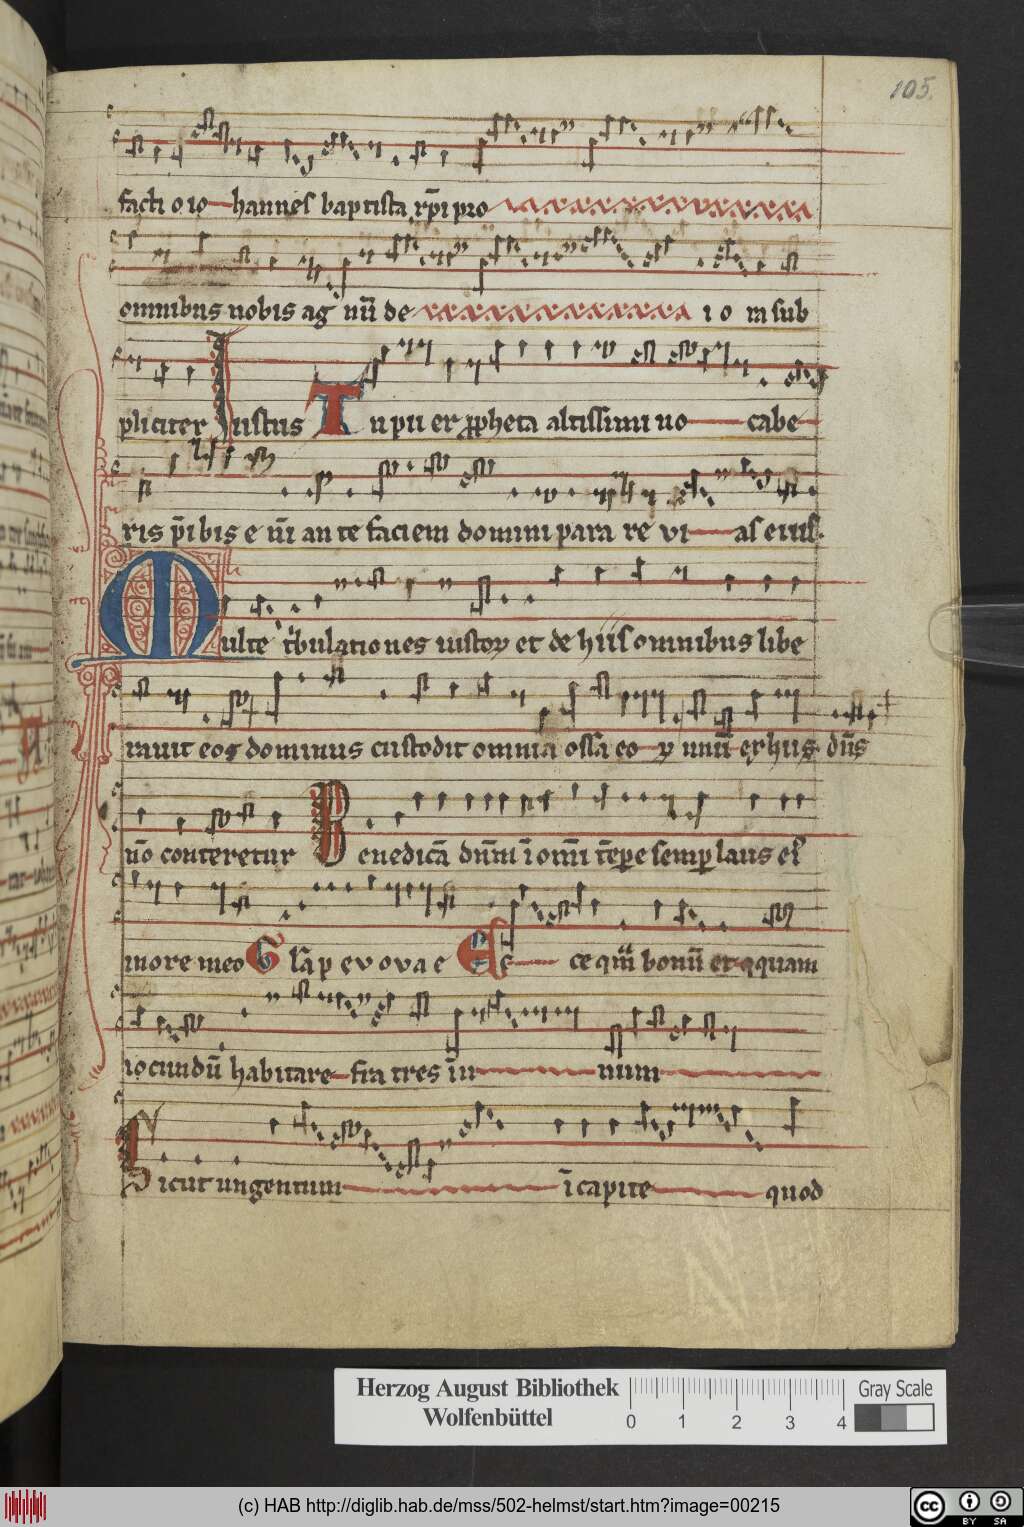 105.
facti o io hannes baptista xp̄i pro
omnibus nobis ag nū de i o m sub
pliciter Iustus Tu pu er ꝓpheta altissimi uo cabe
ris p̄ibis e nī an te faciem domini para re vi as eius.
Multe tͥbulatio nes iustoꝝ et de hiis omnibus libe
rauit eos dominus custodit omnia ossa eo ꝝ unū ex hiis dn̄s
nō conteretur Benedicā dn̄m ī om̄i tēpe semp laus ei
in ore meo Gl̄a p evovae Ec ce qm̄ bonū et qͣquam
iocundū habitare fra tres in u num
Sicut ungentum ī capite quod
Herzog August Bibliothek
Wolfenbüttel
0 1 2 3 4
Gray Scale
(c) HAB http://diglib.hab.de/mss/502-helmst/start.htm?image=00215
cc BY SA